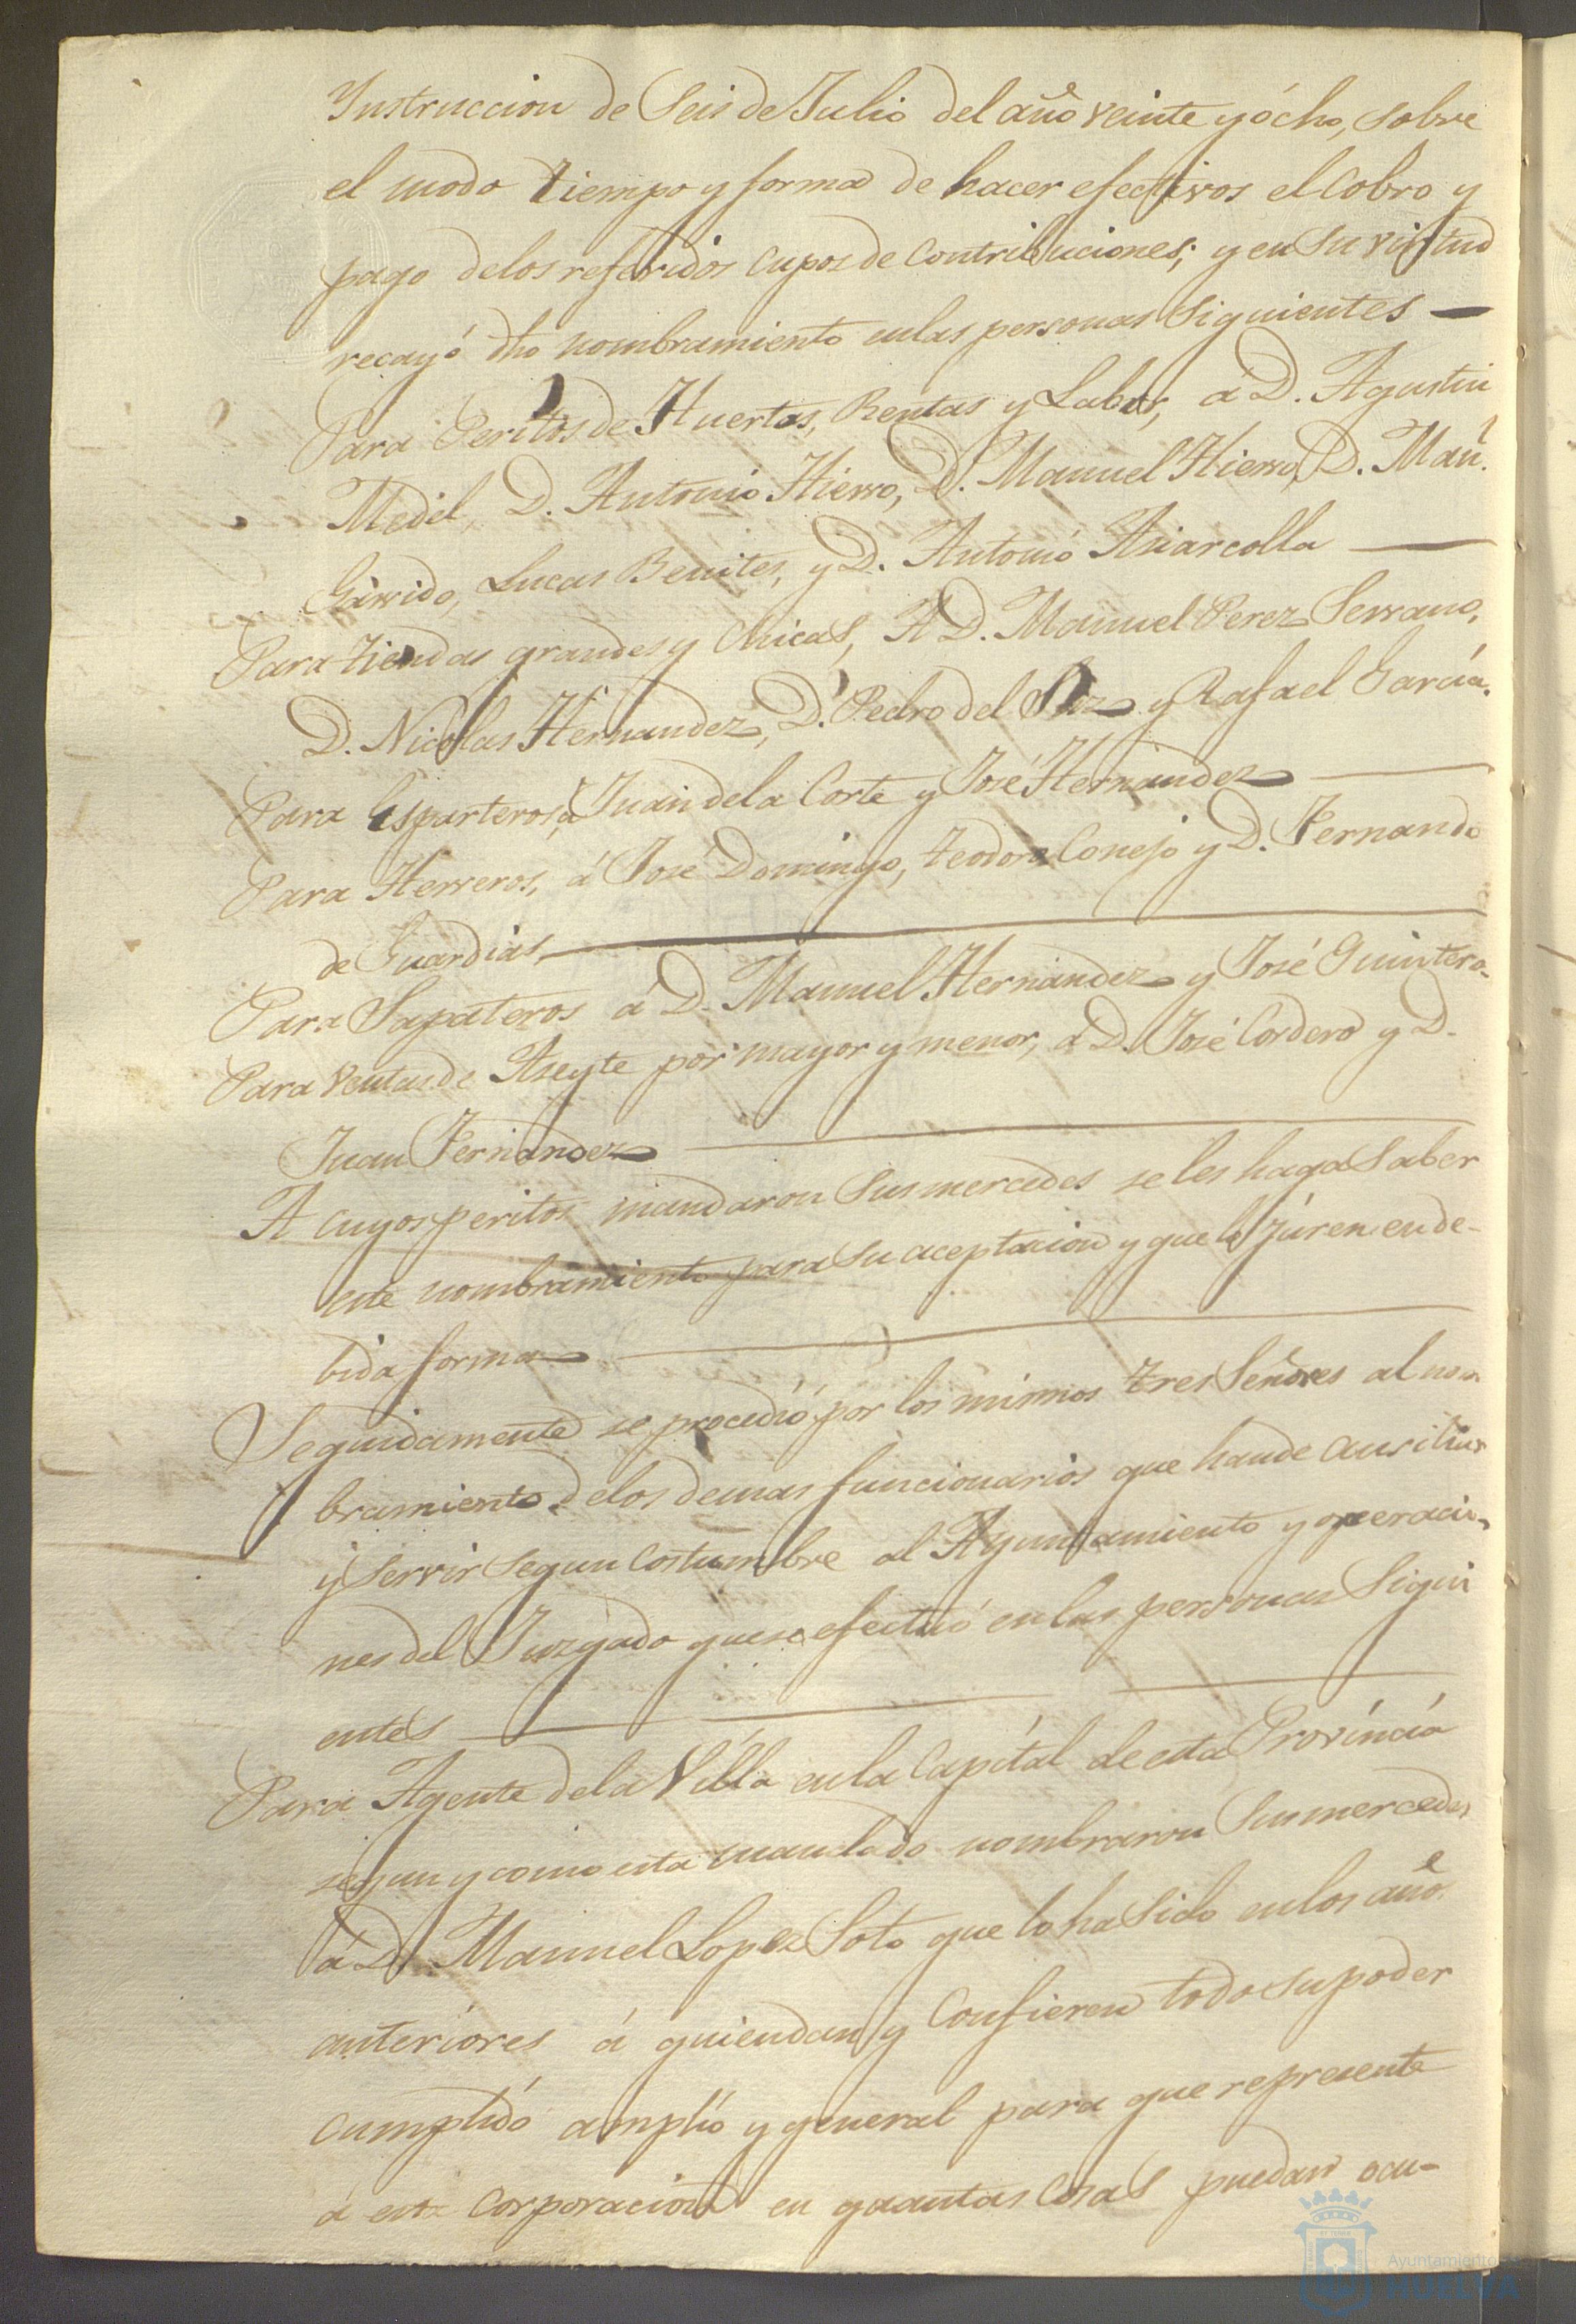 Instruccion de Seis de Julio del año veinte y ócho, sobre
el modo tiempo y forma de hacer efectivos el Cobro y
pago delos referidos cupos de Contribuciones; y en su virtud
recayó dho nombramiento enlas personas Siguientes —
Para Peritos de Huertas, Rentas y Labor, á D. Agustin
Medel, D. Antonio Hierro, D. Manuel Hierro, D. Man.l
Garrido, Lucas Benites, y D. Antonio
Para tiendas grandes y Chicas, A D. Manuel Perez Serrano,
D. Nicolas Hernandez, D. Pedro del y Rafael García.
Para Esparteros, á Juan dela Corte y José Hernandez
Para Herreros, á José Domingo, teodoro Conejo y D. Fernando
de Guardias,
Para Sapateros á D. Manuel Hernandez y José Quintero.
Para Ventas de Aseyte por mayor y menor, á D. José Cordero y D.
Juan Fernandez
A cuyos peritos mandaron Sus mercedes se les haga Saber
este nombramiento para Su aceptacion y que lo júren en de-
bida forma
Seguidamente se procedió por los mismos tres Señores al nom
bramiento delos demas funcionarios que hande ausiliar
y Servir Segun Costumbre al Ayuntamiento y operacio-
nes del Juzgado que se efectuó en las personas Sigui
entes
Para Agente dela Villa enla Capítal de esta Províncía
segun y como esta mandado nombraron Sus mercedes
á D. Manuel Lopez Soto que lo ha Sido enlos años
anteríores á quien dan y Confieren todo su poder
Cumplído amplío y general para que represente
á esta Corporacion en quantas Cosas puedan ocu-
Ayuntamiento de
HUELVA